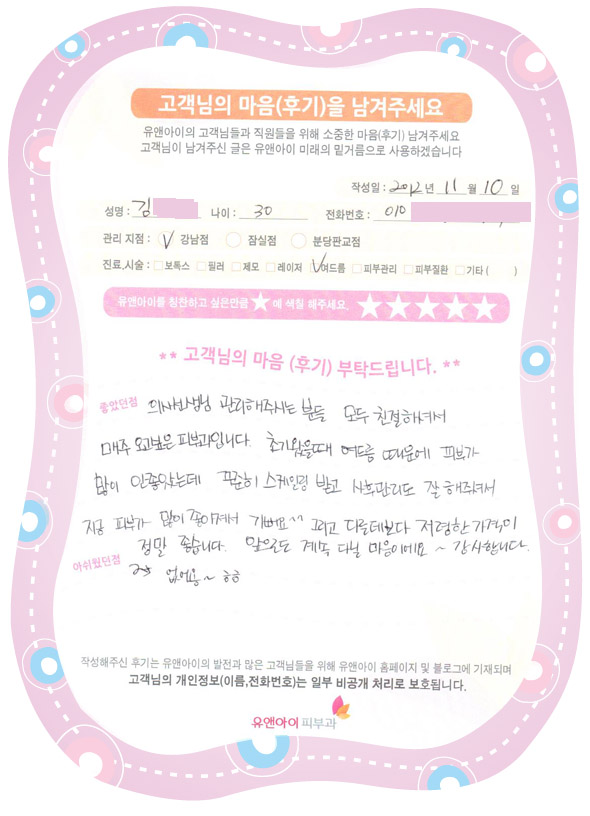 고객님의 마음(후기)을 남겨주세요
유앤아이의 고객님들과 직원들을 위해 소중한 마음(후기) 남겨주세요
고객님이 남겨주신 글은 유앤아이 미래의 밑거름으로 사용하겠습니다
작성일 : 2012 년 11 월 10 일
성명 : 김 나이 : 30 전화번호 : 010
관리 지점 : 강남점 잠실점 분당판교점
진료,시술 : 보톡스 필러 제모 레이저 여드름 피부관리 피부질환 기타 ( )
유앤아이를 칭찬하고 싶은만큼 ★ 에 색칠 해주세요. ★★★★★
** 고객님의 마음 (후기) 부탁드립니다. **
좋았던점 의사선생님 관리해주시는 분들 모두 친절하셔서
매주 오고싶은 피부과입니다. 초기왔을때 여드름 때문에 피부가
많이 안좋았는데 꾸준히 스케일링 받고 사후관리도 잘 해주셔서
지금 피부가 많이 좋아져서 기뻐요^^ 그리고 다른데보다 저렴한 가격이
정말 좋습니다. 앞으로도 계속 다닐 마음이에요 ~ 감사합니다.
아쉬웠던점 없어용~ ㅎㅎ
작성해주신 후기는 유앤아이의 발전과 많은 고객님들을 위해 유앤아이 홈페이지 및 블로그에 기재되며
고객님의 개인정보(이름,전화번호)는 일부 비공개 처리로 보호됩니다.
유앤아이 피부과